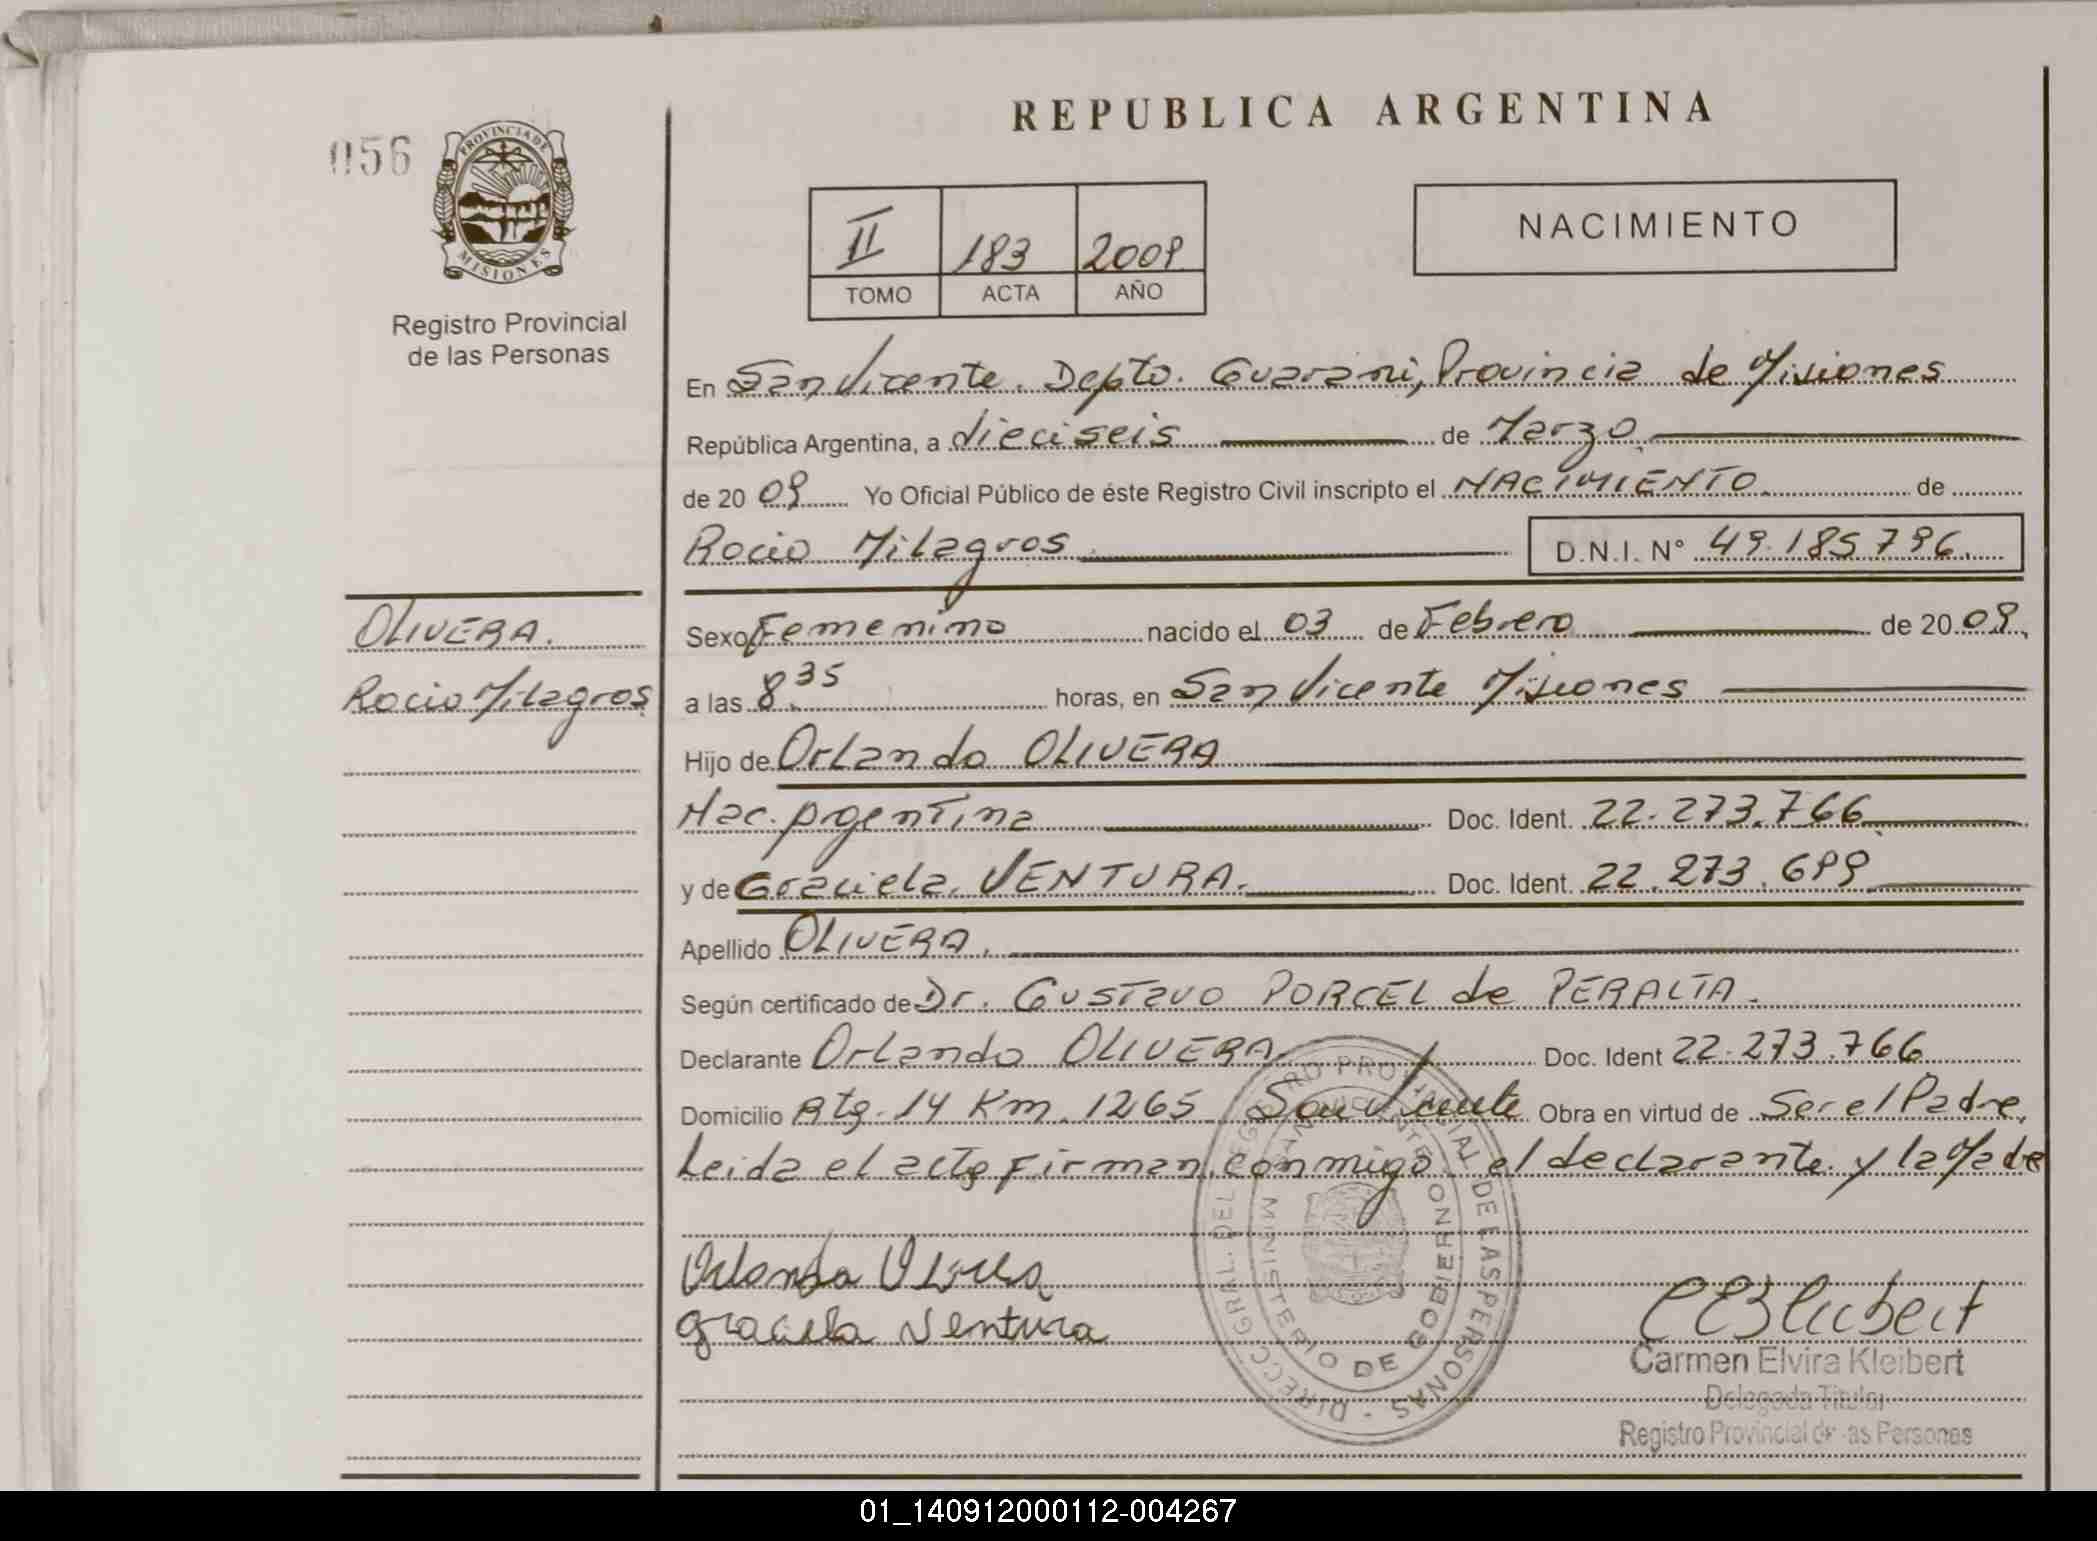 REPUBLICA ARGENTINA
056
PROVINCIA DE
MISIONES
Registro Provincial
de las Personas
II 183 2009
TOMO ACTA AÑO
NACIMIENTO
En San Vicente. Depto. Guarani, Provincia de Misiones
República Argentina, a dieciseis de Marzo
de 20 09 Yo Oficial Público de éste Registro Civil inscripto el NACIMIENTO de
Rocio Milagros D.N.I. N° 49.185796.
OLIVERA.
Rocio Milagros
Sexo Femenino nacido el 03 de Febrero de 20 09.
a las 8.35 horas, en San Vicente Misiones
Hijo de Orlando OLIVERA
Nac. Argentina Doc. Ident. 22.273.766
y de Graciela VENTURA. Doc. Ident. 22.273.699
Apellido OLIVERA.
Según certificado de Dr. Gustavo PORCEL de PERALTA.
Declarante Orlando OLIVERA Doc. Ident 22.273.766
Domicilio Rta. 14 Km. 1265 San Vicente Obra en virtud de Ser el Padre,
Leida el acta firman conmigo el declarante y la Madre
Orlando Olivera
Graciela Ventura
DIRECC. GRAL. DEL REGISTRO PROVINCIAL DE LAS PERSONAS -
MINISTERIO DE GOBIERNO
SAN VICENTE
Carmen Elvira Kleibert
Delegada Titular
Registro Provincial de las Personas
01_140912000112-004267